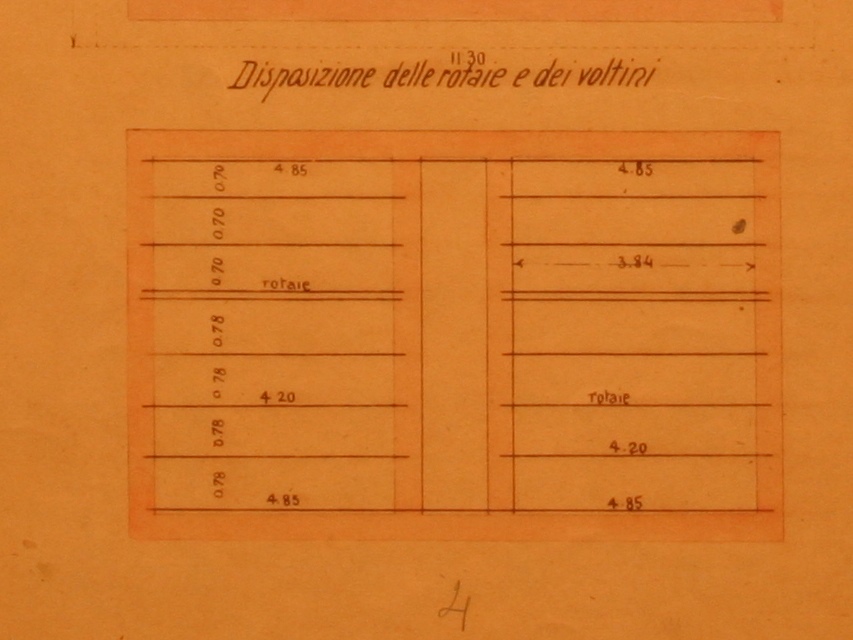 11 30
Disposizione delle rotaie e dei voltini
0.70 4 85 4.85
0.70
0.70 3.84
rotaie
0.78
0 78
4 20 rotaie
0.78 4.20
0.78
4 85 4 85
4